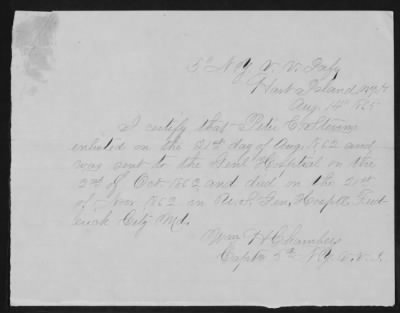 5th N.Y. V. V. Infy
Hart Island N.Y.H
Aug. 14th 1865
I certify that Peter C. Stevens
enlisted on the 21st day of Aug. 1862 and
was sent to the Genl Hospital on the
2nd of Oct 1862 and died on the 21st
of Nov 1862 in Gen. Hosptl. Fred
erick City Md.
Wm H Chambers
Captn 5th N.Y. V. V. I.